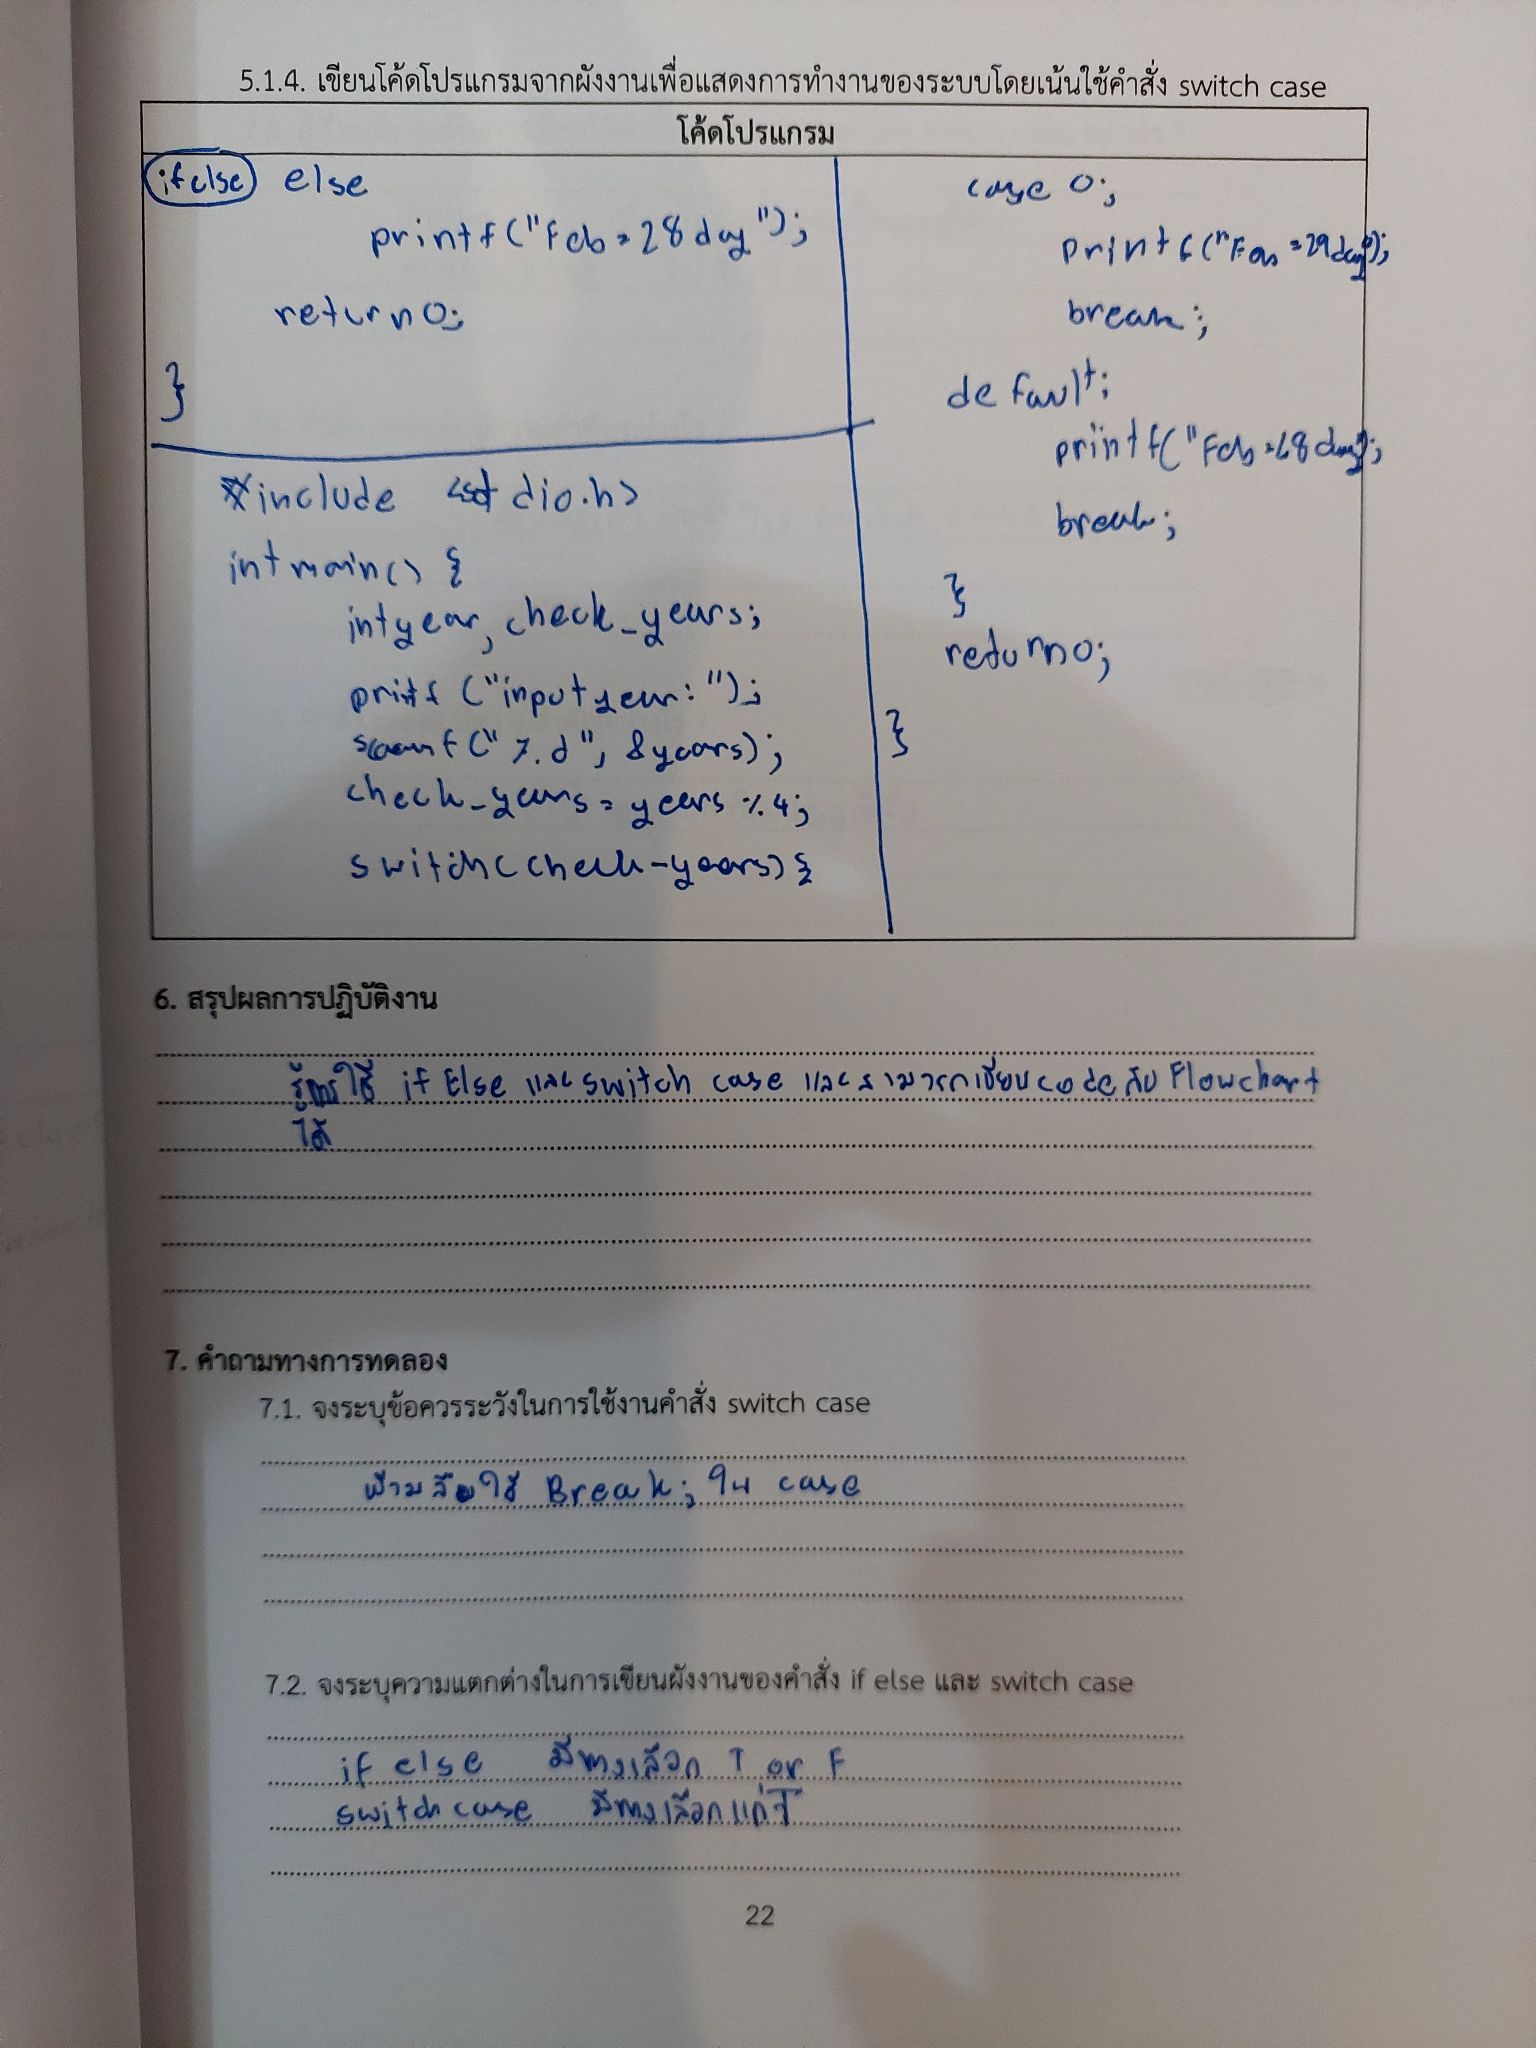 5.1.4. เขียนโค้ดโปรแกรมจากผังงานเพื่อแสดงการทำงานของระบบโดยเน้นใช้คำสั่ง switch case
โค้ดโปรแกรม
ifelse else
printf("Feb=28day");
return0;
}
#include <stdio.h>
int main() {
int year, check_years;
printf ("input year: ");
scanf("%d", &years);
check_years = years % 4;
switch(check-years){
case 0;
printf("Feb=29day");
break;
default:
printf("Feb=28day");
break;
}
return0;
}
6. สรุปผลการปฏิบัติงาน
รู้การใช้ if Else และ switch case และสามารถเขียนcodeกับ Flowchart
ได้
7. คำถามทางการทดลอง
7.1. จงระบุข้อควรระวังในการใช้งานคำสั่ง switch case
ห้ามลืมใช้ Break; ใน case
7.2. จงระบุความแตกต่างในการเขียนผังงานของคำสั่ง if else และ switch case
if else มีทางเลือก T or F
switch case มีทางเลือกแค่ T
22